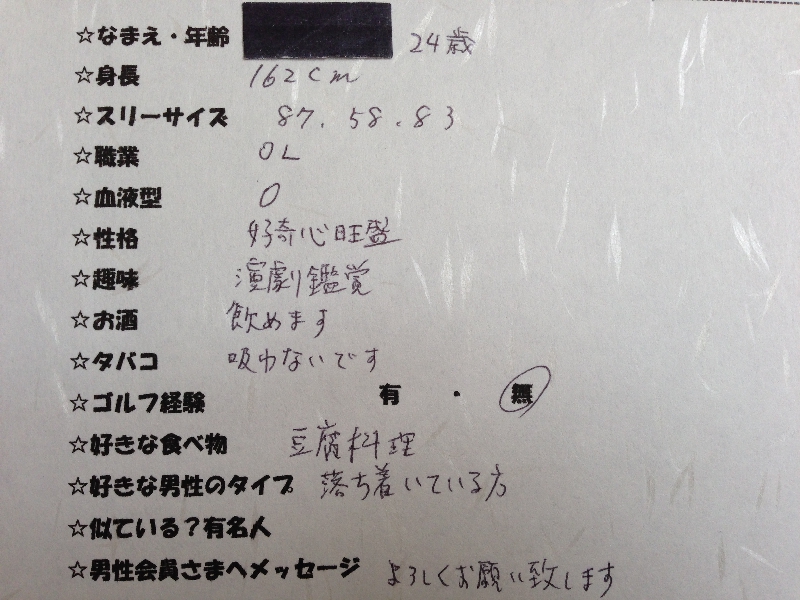 ☆なまえ・年齢 24歳
☆身長 162cm
☆スリーサイズ 87.58.83
☆職業 OL
☆血液型 O
☆性格 好奇心旺盛
☆趣味 演劇鑑賞
☆お酒 飲めます
☆タバコ 吸わないです
☆ゴルフ経験 有・無
☆好きな食べ物 豆腐料理
☆好きな男性のタイプ 落ち着いている方
☆似ている？有名人
☆男性会員さまへメッセージ よろしくお願い致します